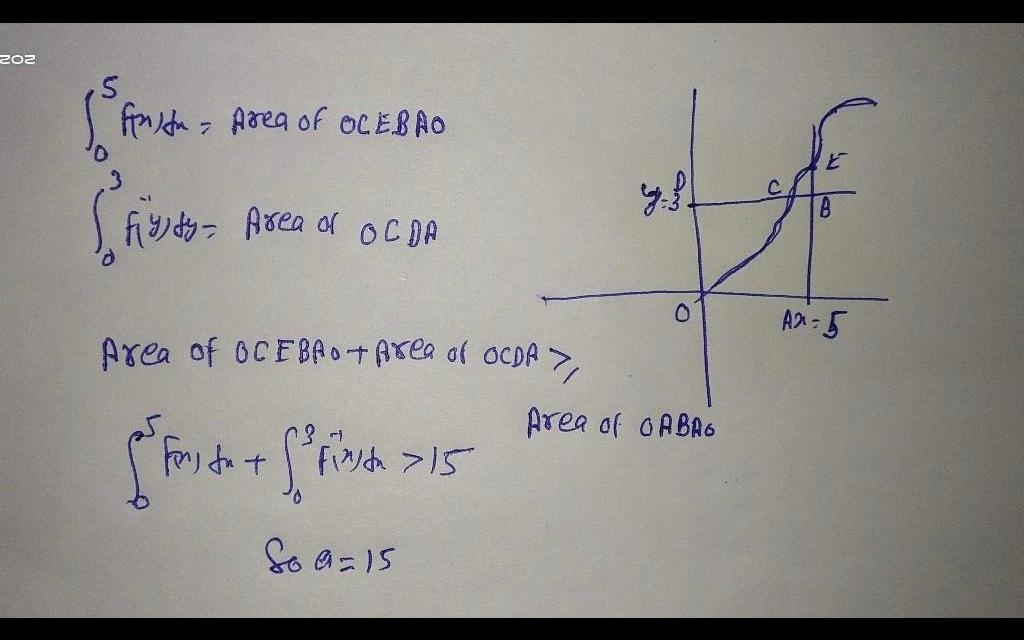 ∫₀⁵ f(x)dx = Area of OCEBAO
∫₀³ f⁻¹(y)dy = Area of OCDA
Area of OCEBAO + Area of OCDA ≥
Area of OABAO
∫₀⁵ f(x)dx + ∫₀³ f⁻¹(x)dx > 15
So a = 15
E
D
C
y=3
B
O
A x=5